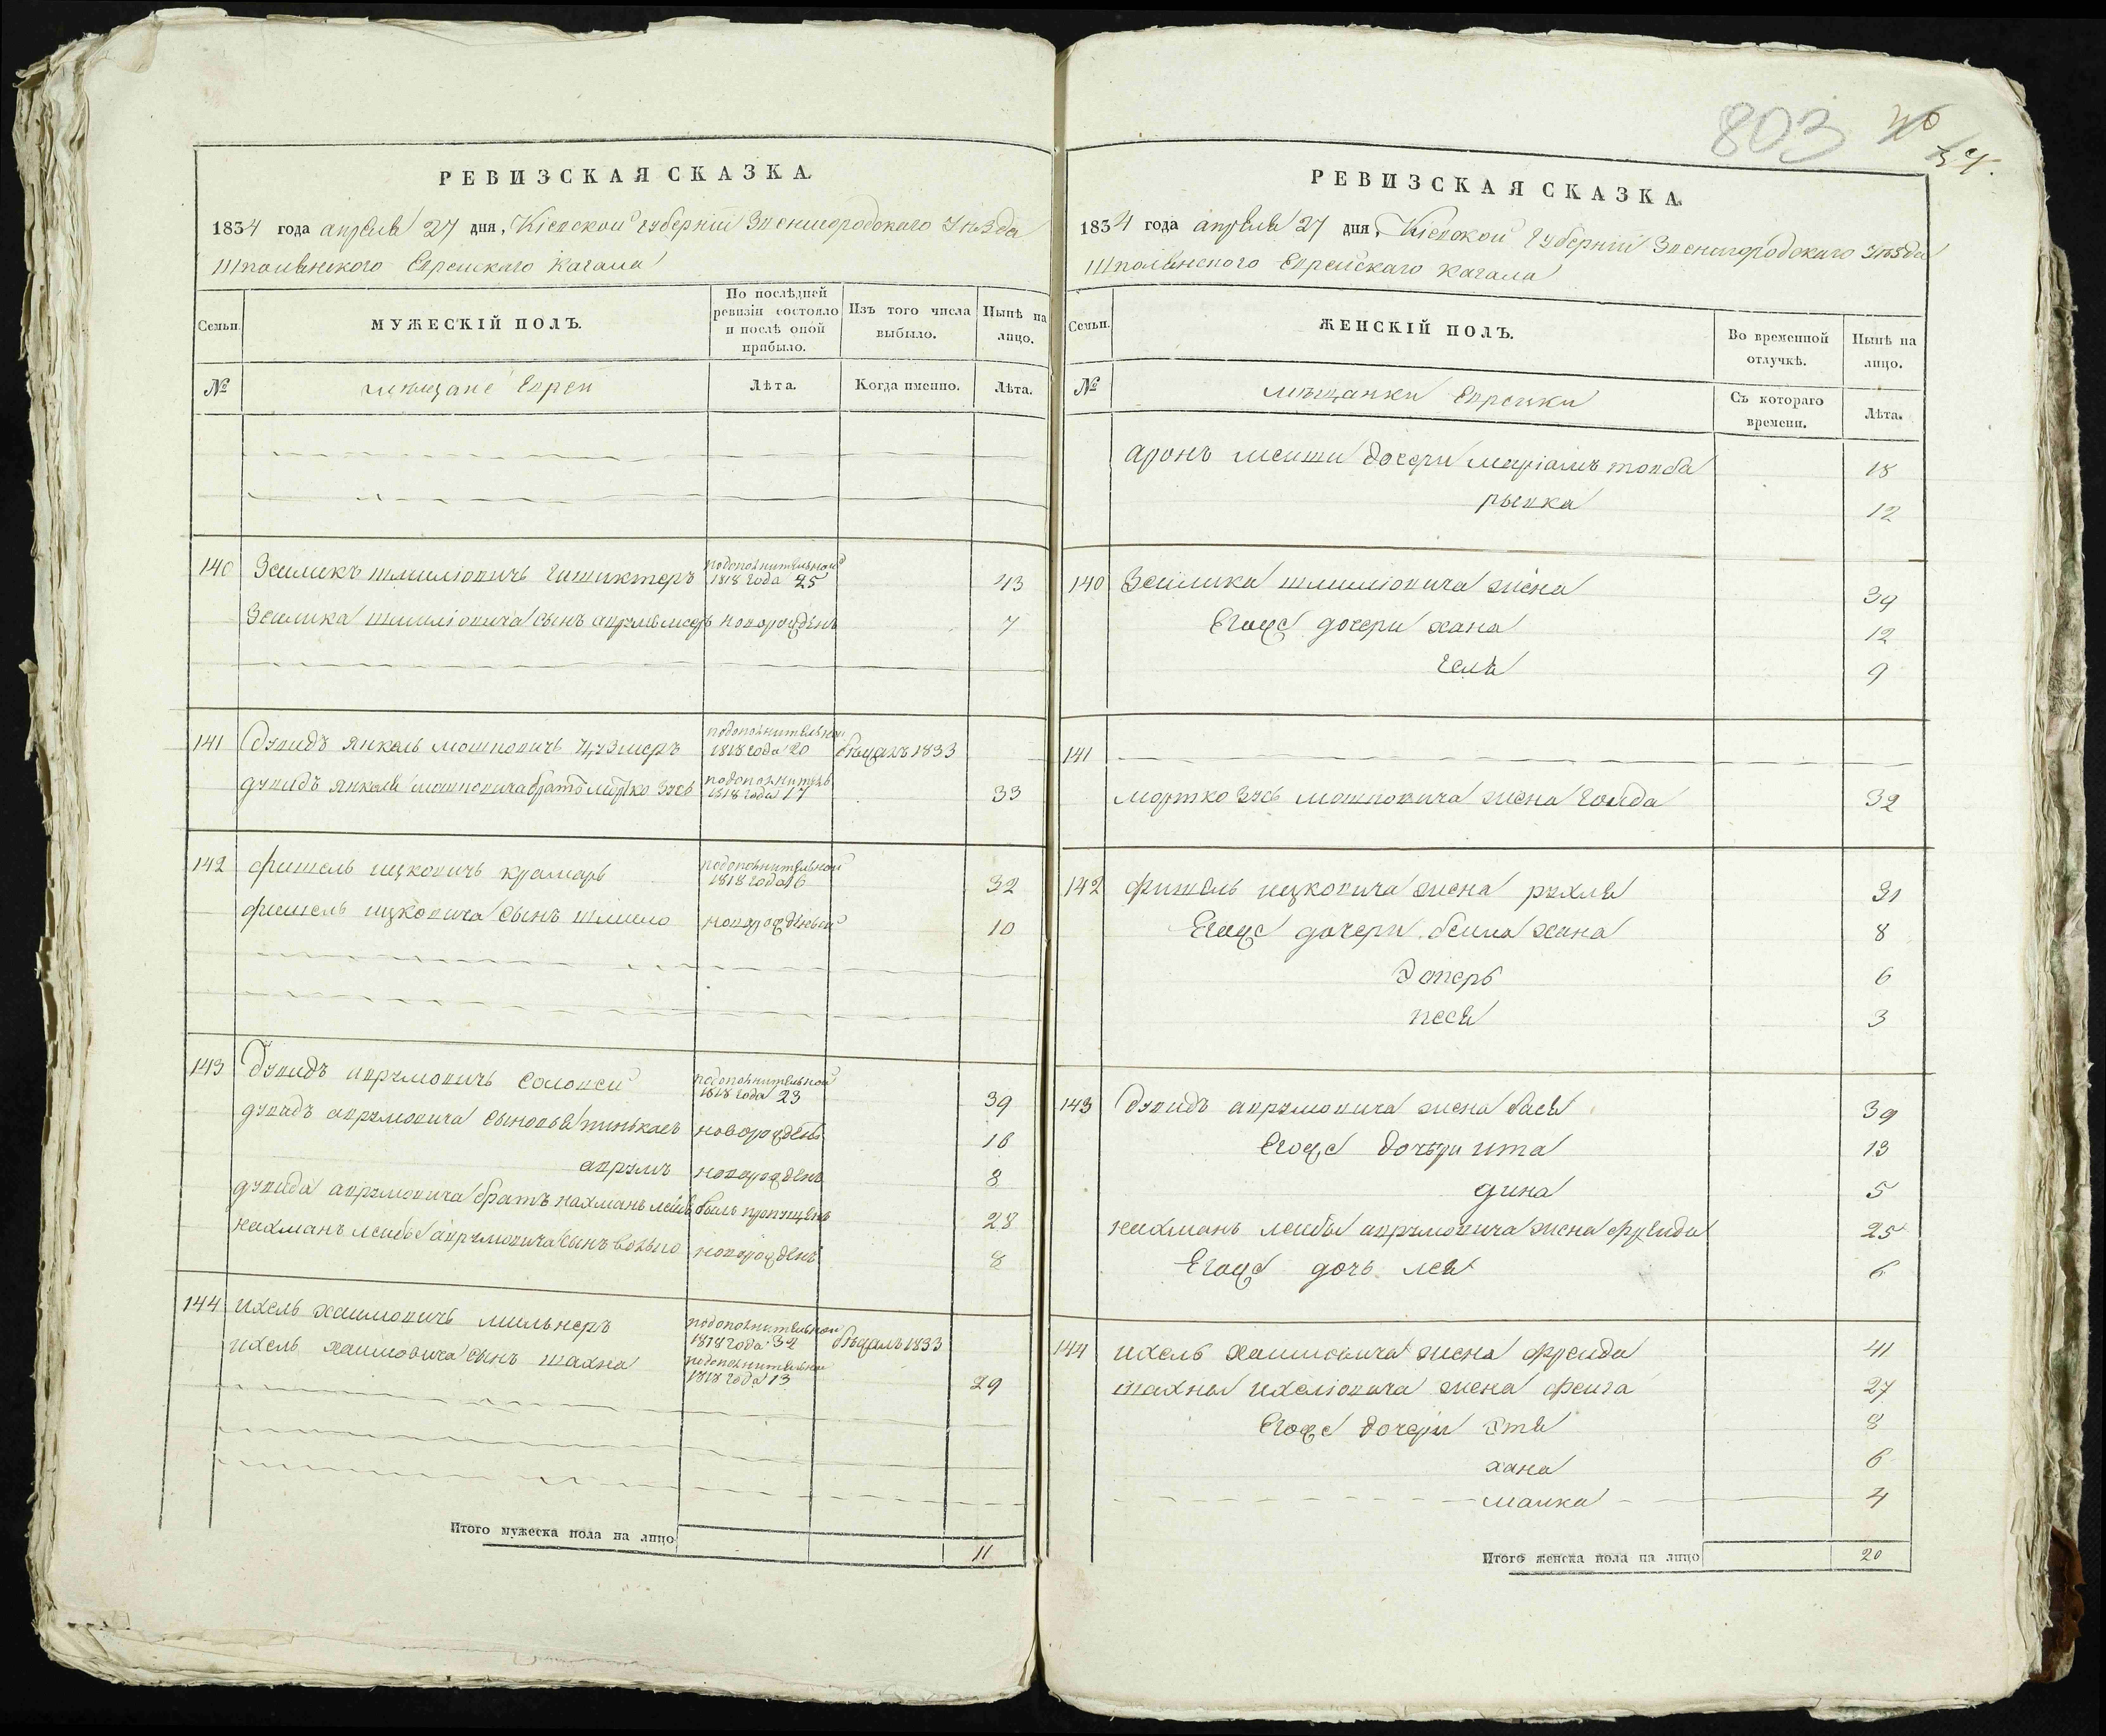 РЕВИЗСКАЯ СКАЗКА
1834 года апреля 27 дня, Кіевской губерніи Звенигородскаго уѣзда
Шполянского Еврейскаго кагала
Семьи.
МУЖЕСКІЙ ПОЛЪ.
По послѣдней ревизіи состояло и послѣ оной прибыло.
Изъ того числа выбыло.
Нынѣ на лицо.
№
мѣщане Евреи
Лѣта.
Когда именно.
Лѣта.
140 Зейликъ шмиліовичь подополнительной 1818 года 25 43
Зейлика шмиліовича сынъ новорожденъ 7
141 дувидъ янкель мошковичь подополнительной 1818 года 20 1833
дувидъ янкеля мошковича братъ мортко зусь подополнитель 1818 года 17 33
142 фишель ицковичь крамарь подополнительной 1818 года 16 32
фишель ицковича сынъ шмило новорожденой 10
143 дувидъ аврумовичь соловей подополнительной 1818 года 23 39
дувидъ аврумовича сыновья пинькасъ новорожденъ 16
аврумъ новорожденъ 8
дувида аврумовича братъ нахманъ лейбъ былъ пропущенъ 28
нахманъ лейбы аврумовича сынъ вольво новорожденъ 8
144 ихель хаимовичь мильнеръ подополнительной 1818 года 34 1833
ихель хаимовича сынъ шахна подополнительной 1818 года 13 29
Итого мужеска пола на лицо 11
803
РЕВИЗСКАЯ СКАЗКА
1834 года апреля 27 дня, Кіевской губерніи Звенигородскаго уѣзда
Шполянского Еврейскаго кагала
Семьи.
ЖЕНСКІЙ ПОЛЪ.
Во временной отлучкѣ.
Нынѣ на лицо.
№
мѣщанки Еврейки
Съ котораго времени.
Лѣта.
аронъ дочери маріамъ товба 18
рывка 12
140 Зейлика шмиліовича жена 39
Егоже дочери хана 12
геля 9
141
мортко зусь мошковича жена голда 32
142 фишель ицковича жена рухля 31
Егоже дочери бейла хана 8
двперь 6
песя 3
143 дувидъ аврумовича жена бася 39
Егоже дочери ита 13
дина 5
нахманъ лейбы аврумовича жена фрейда 25
Егоже дочь лея 6
144 ихель хаимовича жена фрейда 41
шахны ихеліовича жена фейга 27
Егоже дочери этя 8
хана 6
малка 4
Итого женска пола на лицо 20